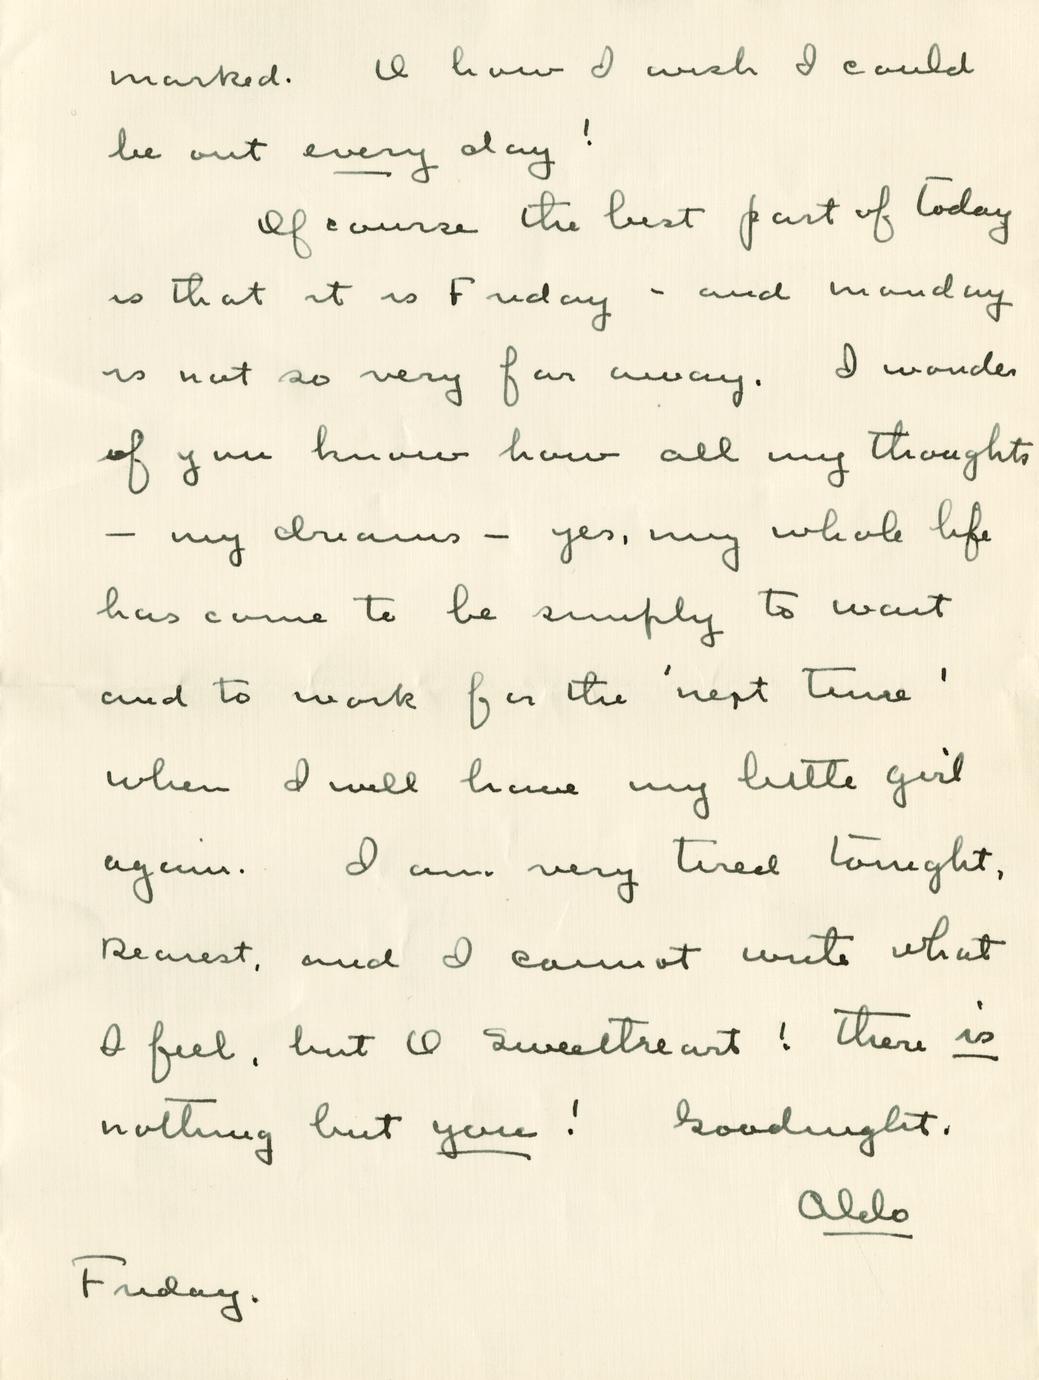 marked. O how I wish I could
be out every day!
Of course the best part of today
is that it is Friday - and monday
is not so very far away. I wonder
if you know how all my thoughts
— my dreams — yes, my whole life
has come to be simply to wait
and to work for the 'next time'
when I will have my little girl
again. I am very tired tonight,
Dearest, and I cannot write what
I feel, but O Sweetheart! there is
nothing but you! Goodnight.
Aldo
Friday.